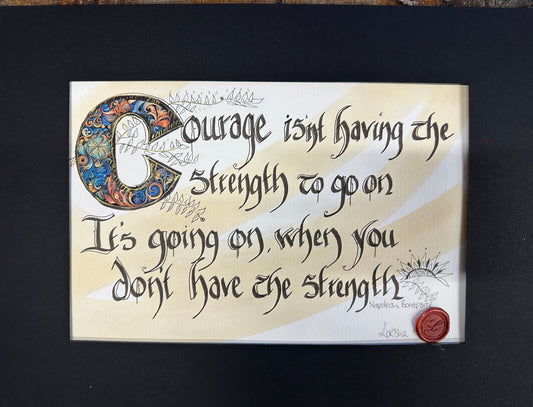 Courage isn't having the
strength to go on
It's going on, when you
don't have the strength
Napoleon Bonaparte